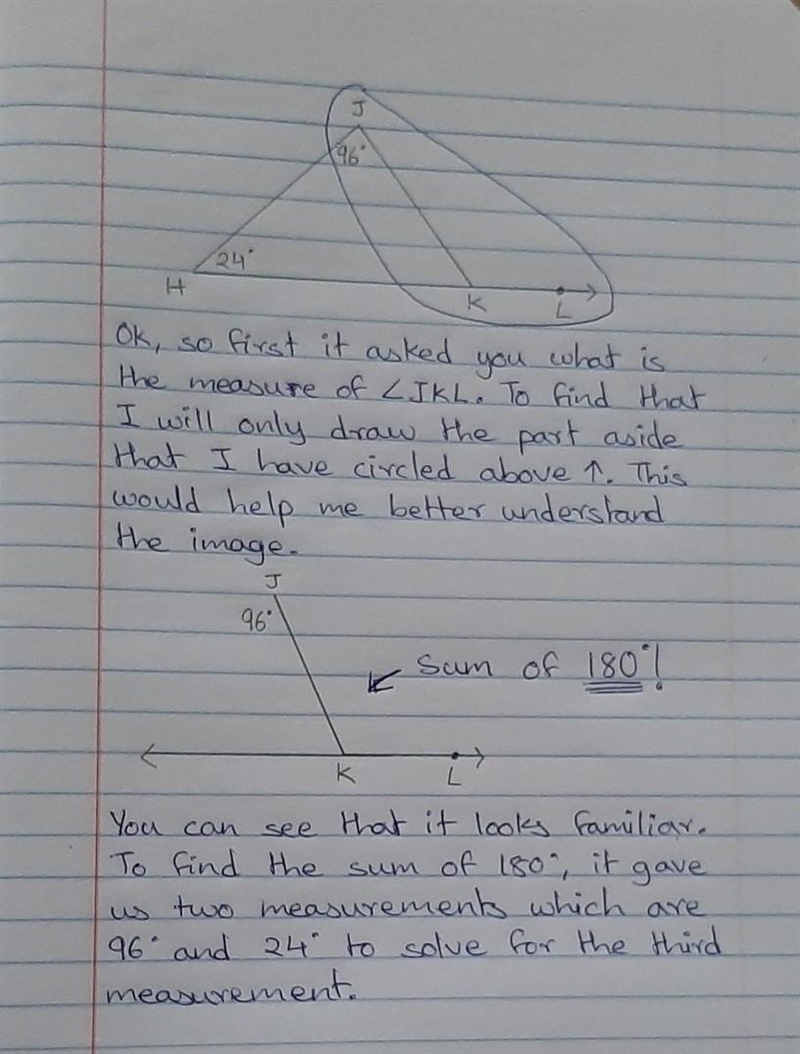 J
96°
24°
H
K
L
Ok, so first it asked you what is
the measure of ∠JKL. To find that
I will only draw the part aside
that I have circled above ↑. This
would help me better understand
the image.
J
96°
Sum of 180°!
K
L
You can see that it looks familiar.
To find the sum of 180°, it gave
us two measurements which are
96° and 24° to solve for the third
measurement.